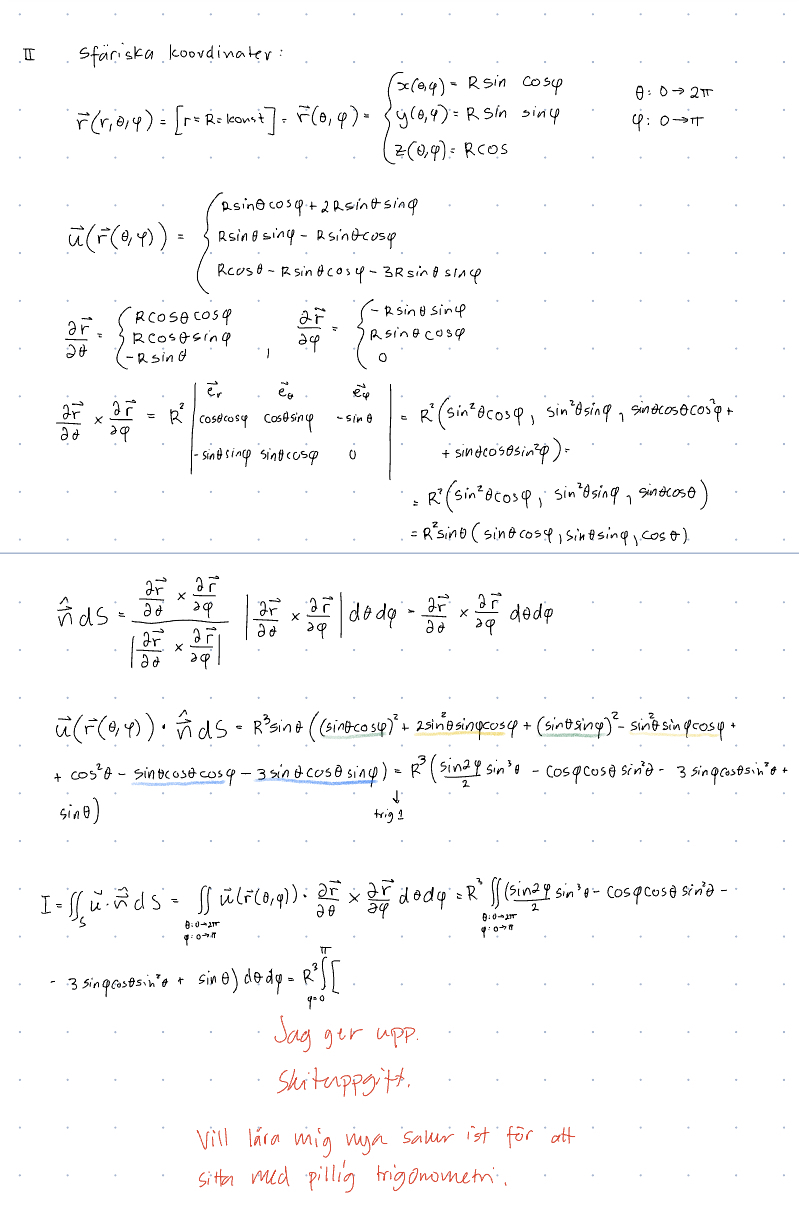 II Sfäriska koordinater:
r⃗(r,θ,φ) = [r=R=konst] = r⃗(θ,φ) = { x(θ,φ) = R sin cosφ
y(θ,φ) = R sin sinφ
z(θ,φ) = R cos
θ: 0→2π
φ: 0→π
u⃗(r⃗(θ,φ)) = { R sinθ cosφ + 2R sinθ sinφ
R sinθ sinφ - R sinθ cosφ
R cosθ - R sinθ cosφ - 3R sinθ sinφ
∂r⃗/∂θ = { R cosθ cosφ
R cosθ sinφ
-R sinθ ,
∂r⃗/∂φ = { -R sinθ sinφ
R sinθ cosφ
0
∂r⃗/∂θ × ∂r⃗/∂φ = R² | e⃗r e⃗θ e⃗φ
cosθcosφ cosθsinφ -sinθ
-sinθsinφ sinθcosφ 0 |
= R²(sin²θcosφ, sin²θsinφ, sinθcosθcos²φ +
+ sinθcosθsin²φ) =
= R²(sin²θcosφ, sin²θsinφ, sinθcosθ)
= R²sinθ(sinθcosφ, sinθsinφ, cosθ)
n̂ dS = (∂r⃗/∂θ × ∂r⃗/∂φ)/|∂r⃗/∂θ × ∂r⃗/∂φ| |∂r⃗/∂θ × ∂r⃗/∂φ| dθdφ = ∂r⃗/∂θ × ∂r⃗/∂φ dθdφ
u⃗(r⃗(θ,φ)) · n̂ dS = R³sinθ((sinθcosφ)² + 2sin²θsinφcosφ + (sinθsinφ)² - sin²θsinφcosφ +
+ cos²θ - sinθcosθcosφ - 3sinθcosθsinφ) = R³(sin2φ/2 sin³θ - cosφcosθsin²θ - 3sinφcosθsin²θ +
sinθ)
↓
trig 1
I = ∬S u⃗·n̂ dS = ∬ u⃗(r⃗(θ,φ)) · ∂r⃗/∂θ × ∂r⃗/∂φ dθdφ = R³ ∬(sin2φ/2 sin³θ - cosφcosθsin²θ -
θ:0→2π θ:0→2π
φ:0→π φ:0→π
- 3sinφcosθsin²θ + sinθ) dθdφ = R³ ∬[
π
φ=0
Jag ger upp.
Skituppgift.
Vill lära mig nya saker ist för att
sitta med pillig trigonometri.